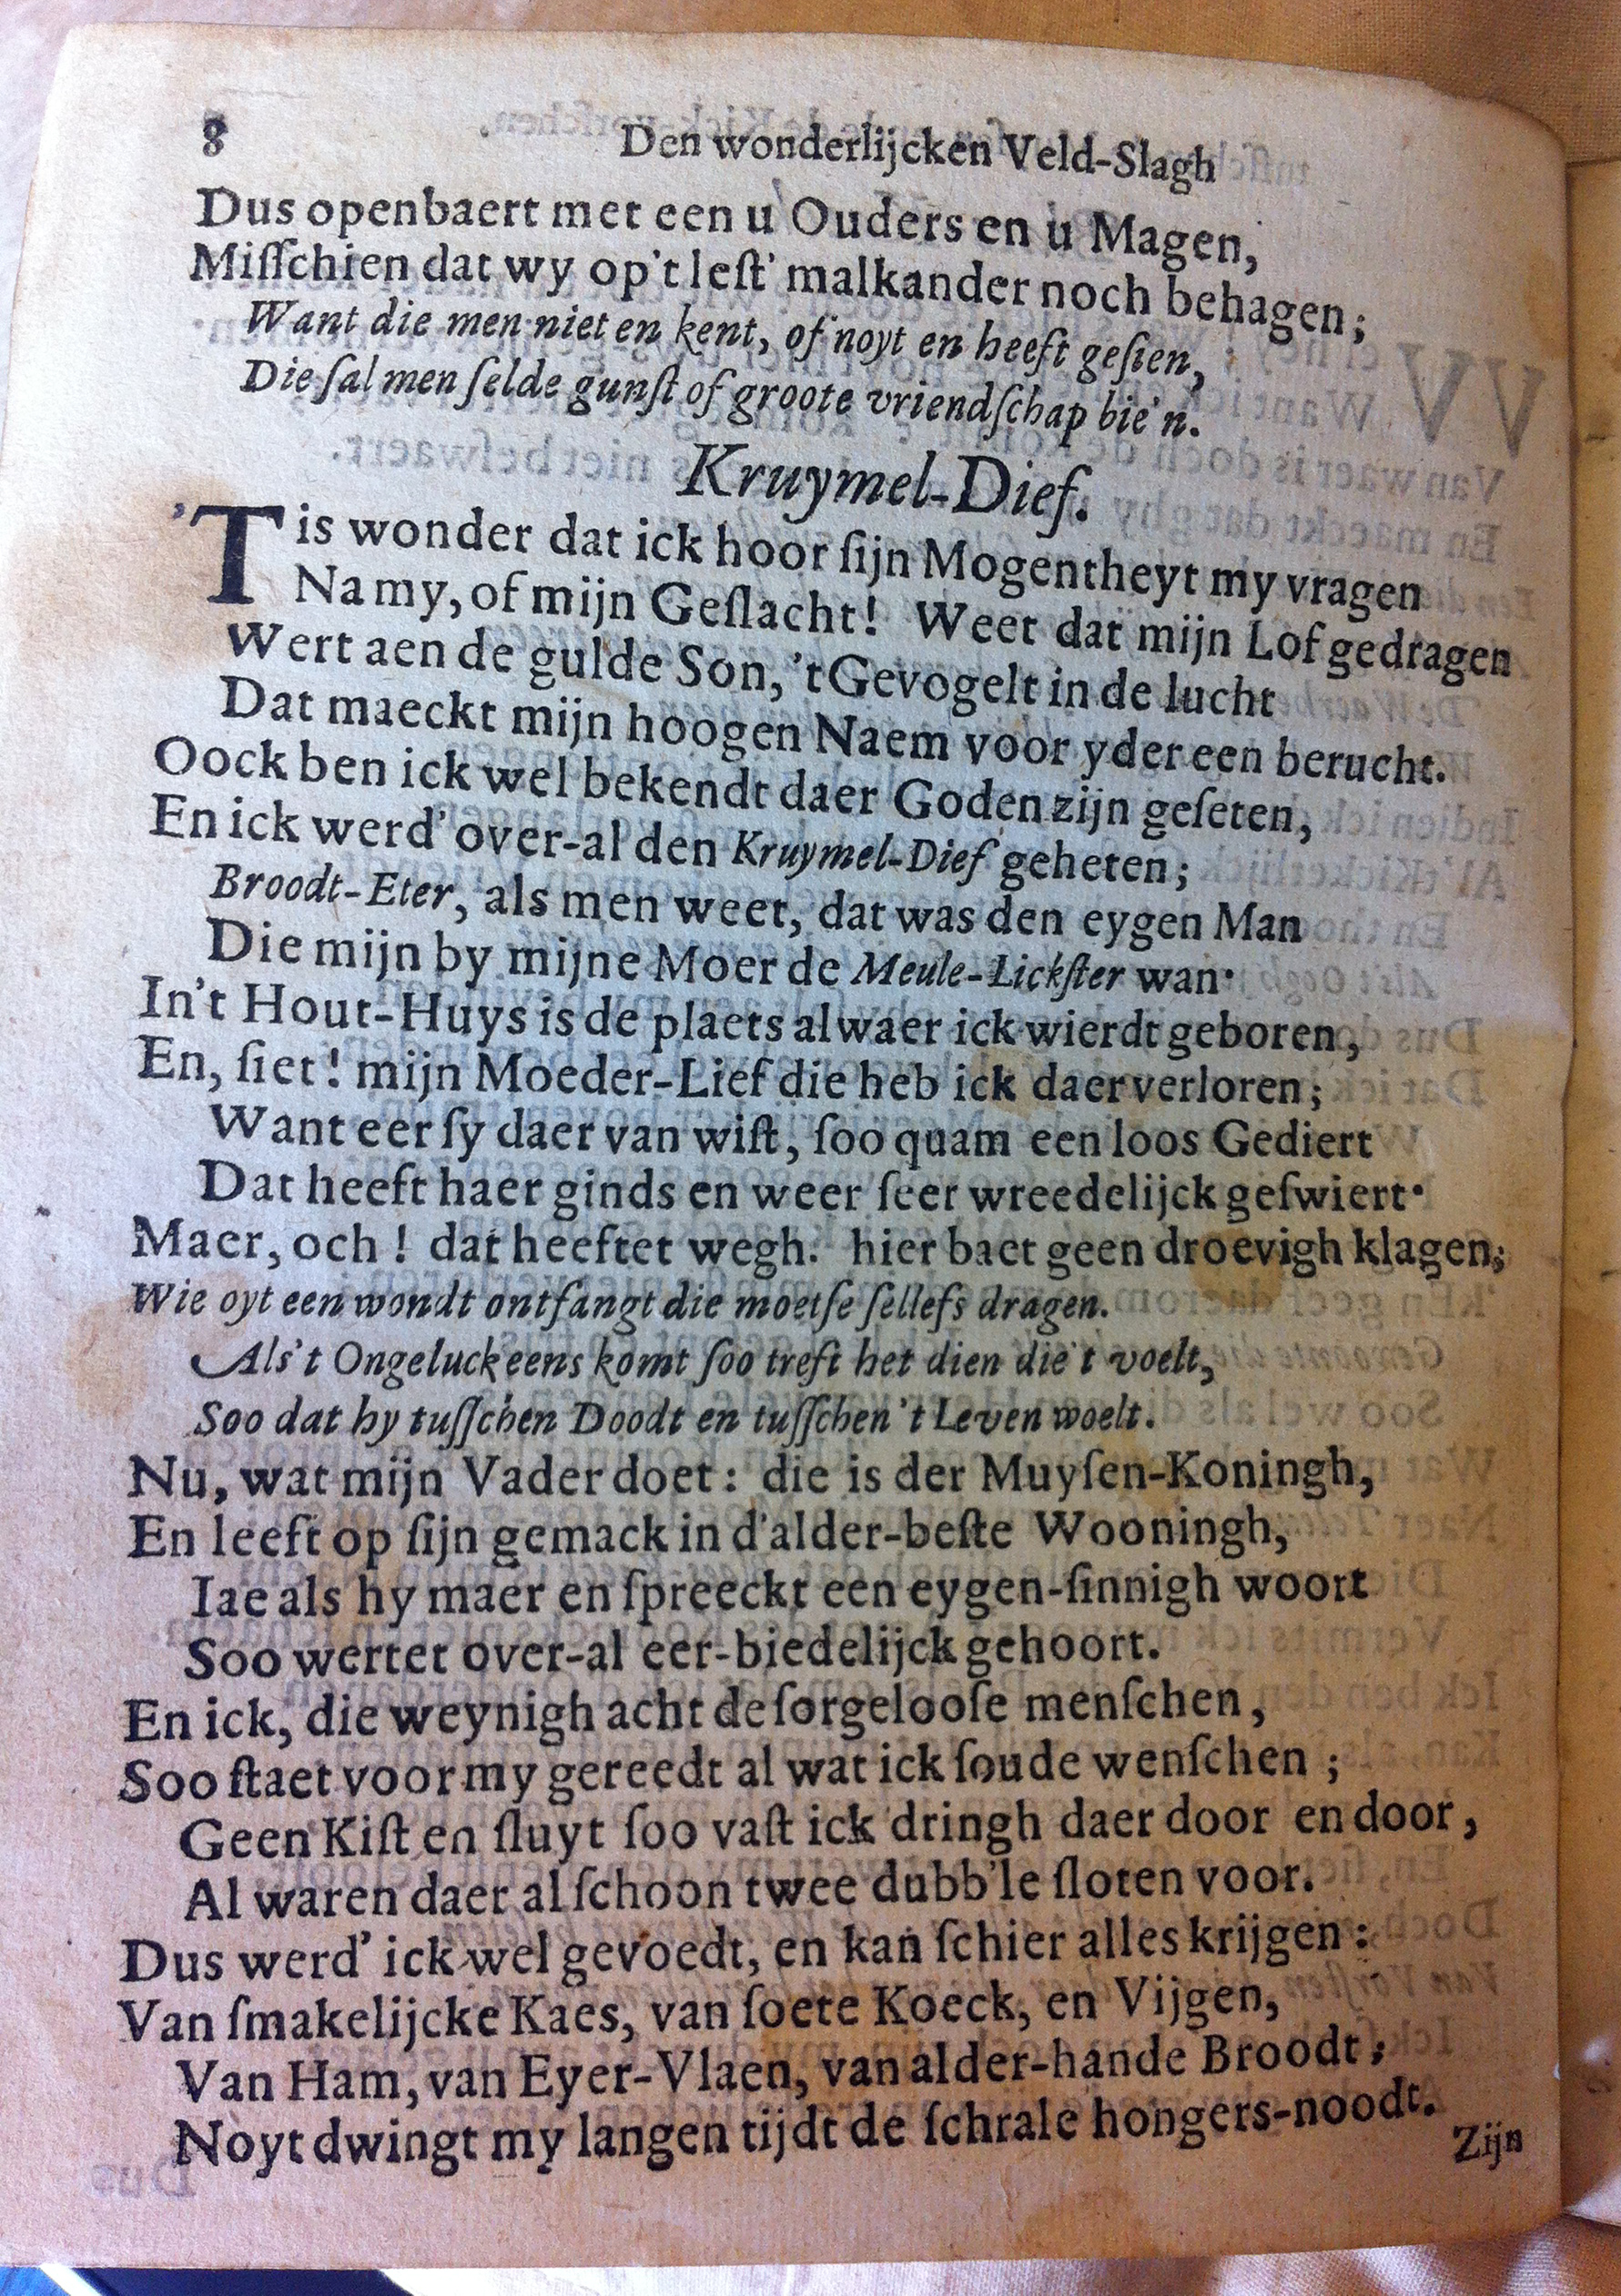 8 Den wonderlijcken Veld-Slagh
Dus openbaert met een u Ouders en u Magen,
Miſſchien dat wy op't leſt' malkander noch behagen;
Want die men niet en kent, of noyt en heeft geſien,
Die ſal men ſelde gunſt of groote vriendſchap bie'n.
Kruymel-Dief.
'Tis wonder dat ick hoor ſijn Mogentheyt my vragen
Na my, of mijn Geſlacht! Weet dat mijn Lof gedragen
Wert aen de gulde Son, 't Gevogelt in de lucht
Dat maeckt mijn hoogen Naem voor yder een berucht.
Oock ben ick wel bekendt daer Goden zijn geſeten,
En ick werd' over-al den Kruymel-Dief geheten;
Broodt-Eter, als men weet, dat was den eygen Man
Die mijn by mijne Moer de Meule-Lickſter wan.
In't Hout-Huys is de plaets alwaer ick wierdt geboren,
En, ſiet! mijn Moeder-Lief die heb ick daer verloren;
Want eer ſy daer van wiſt, ſoo quam een loos Gediert
Dat heeft haer ginds en weer ſeer wreedelijck geſwiert.
Maer, och! dat heeftet wegh. hier baet geen droevigh klagen;
Wie oyt een wondt ontfangt die moetſe ſellefs dragen.
Als't Ongeluck eens komt ſoo treft het dien die't voelt,
Soo dat hy tuſſchen Doodt en tuſſchen 't Leven woelt.
Nu, wat mijn Vader doet: die is der Muyſen-Koningh,
En leeft op ſijn gemack in d'alder-beſte Wooningh,
Iae als hy maer en ſpreeckt een eygen-ſinnigh woort
Soo wertet over-al eer-biedelijck gehoort.
En ick, die weynigh acht de ſorgelooſe menſchen,
Soo ſtaet voor my gereedt al wat ick ſoude wenſchen;
Geen Kiſt en ſluyt ſoo vaſt ick dringh daer door en door,
Al waren daer al ſchoon twee dubb'le ſloten voor.
Dus werd' ick wel gevoedt, en kan ſchier alles krijgen:
Van ſmakelijcke Kaes, van ſoete Koeck, en Vijgen,
Van Ham, van Eyer-Vlaen, van alder-hande Broodt;
Noyt dwingt my langen tijdt de ſchrale hongers-noodt.
Zijn